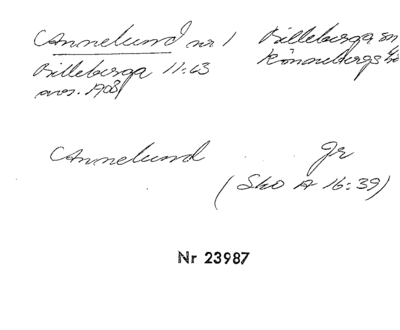 Annelund nr 1 Billeberga sn
Billeberga 11:63 Rönnebergs hd
avs. 1908
Annelund gr
(Sko A 16:39)
Nr 23987